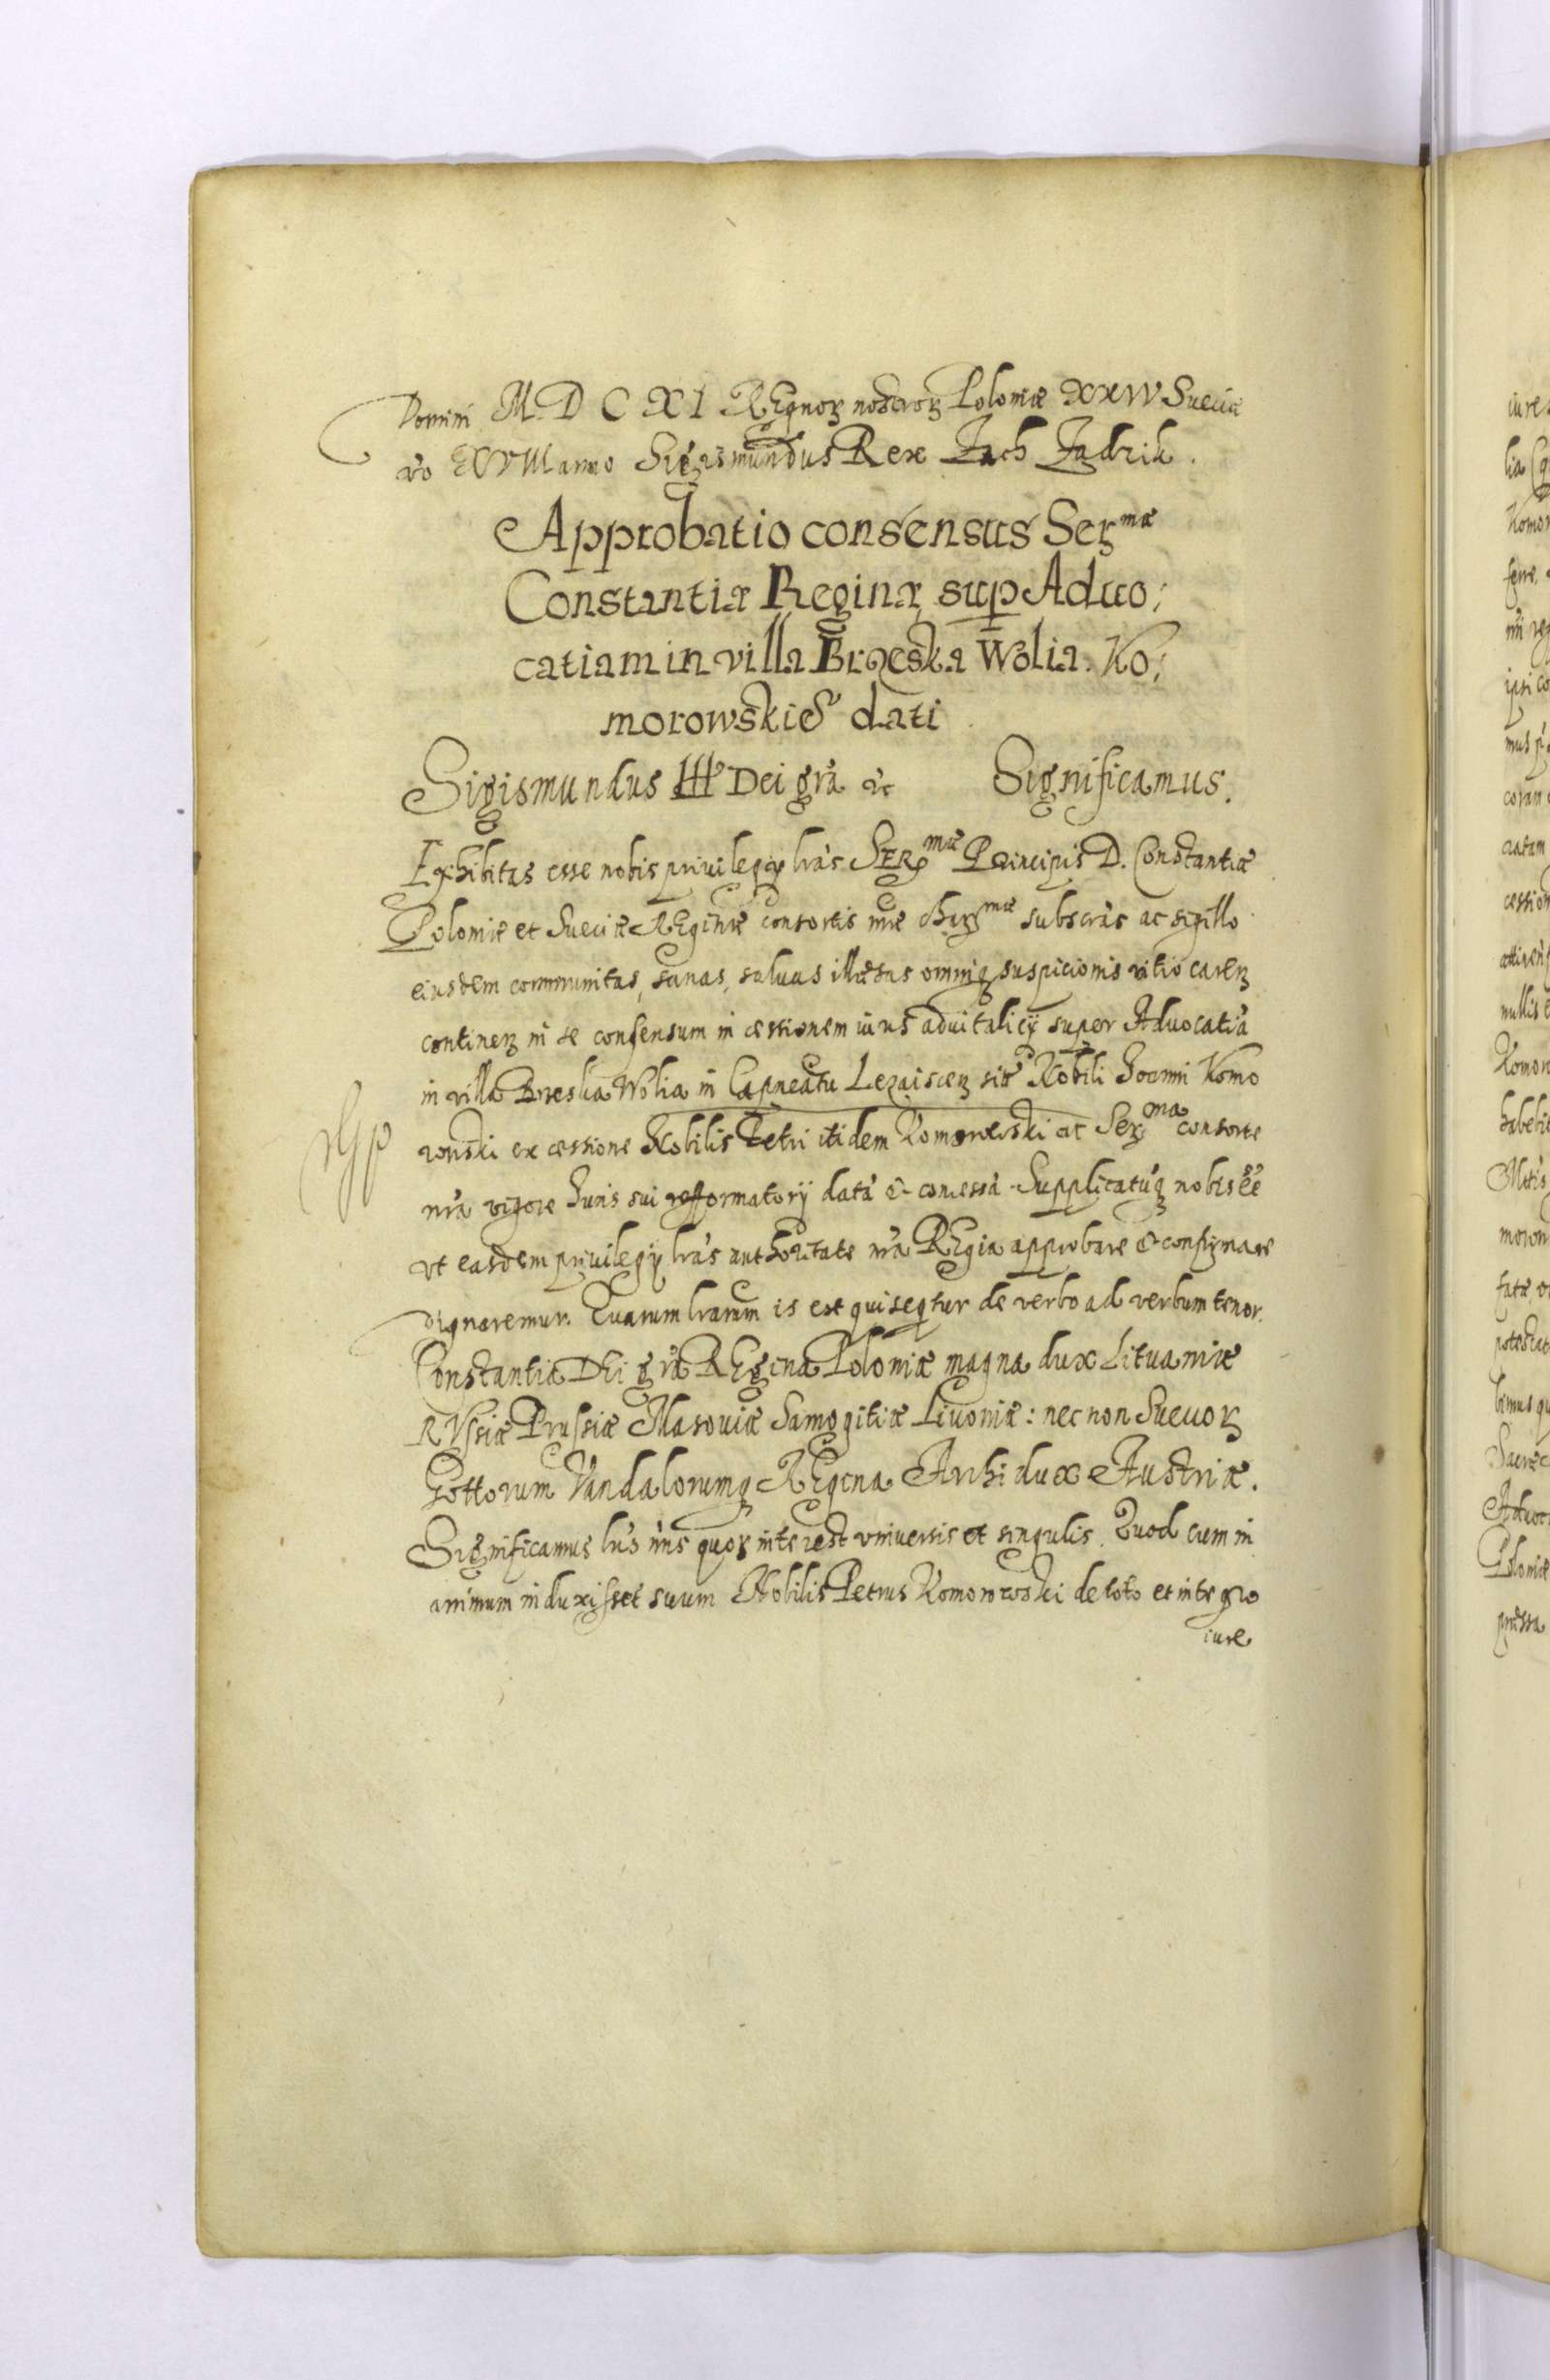 Domini M. D C XI REgnoꝝ nostroꝝ Poloniæ XXIV Sueciæ
vo XVIII anno Sigismundus Rex Jach Zadzik.
Approbatio consensus Serᵐᵃᵉ
Constantiæ Reginæ sup Aduo;
catiam in villa Brzeska Wolia. Ko;
morowskiēs dati
Sigismundus III Dei gra &c Significamus.
Exhibitas esse nobis priuilegij lras SERᵐᵃᵉ Principis D. Constantiæ
Poloniæ et Sueciæ REginæ consortis nræ charᵐᵃᵉ subscras ac sigillo
eiusdem communitas, sanas, saluas illæsas omniq suspicionis vitio careñ
contineñ in se consensum in cessionem iuris aduitalicij super Aduocatia
in villa Breska Wolia in Capneatu Lezaisceñ sitæ Nobili Joanni Komo
rowski ex cessione Nobilis Petri itidem Komorowski ac Serᵐᵃ consorte
nra vigore Juris sui refformatorij data & concessa. Supplicatuq nobis ēē
vt easdem priuilegij lras authoritate nra REgia approbare & confirmare
dignaremur. Quarum lrarum is est qui seqtur de verbo ad verbum tenor.
Constantia DEi gra REgina Poloniæ magna dux Lituaniæ
RVssiæ Prussiæ Masouiæ Samogitiæ Liuoniæ: nec non Sueuoꝝ
Gottorum Vandalorumq REgina Archidux Austriæ.
Significamus hīs nris quoꝝ interest vniuersis et singulis. Quod cum in
animum induxisset suum Nobilis Petrus Komorowski de toto et integro
iure